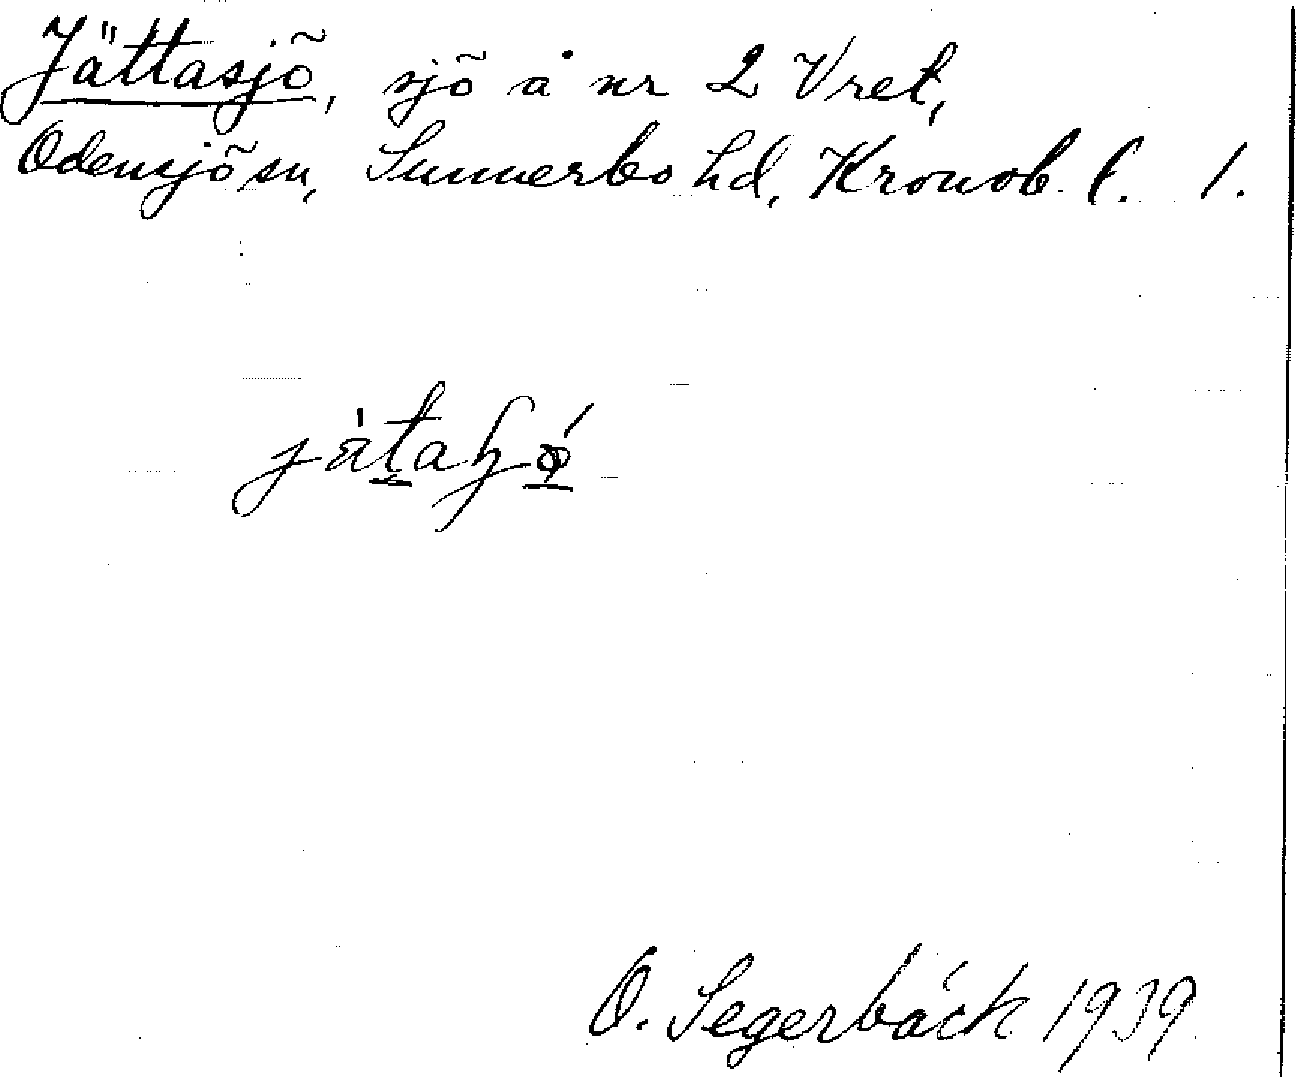 Jättasjö, sjö å nr 2 Vret,
Odensjö sn, Sunnerbo hd, Kronob. l. 1.
O. Segerbäck 1939